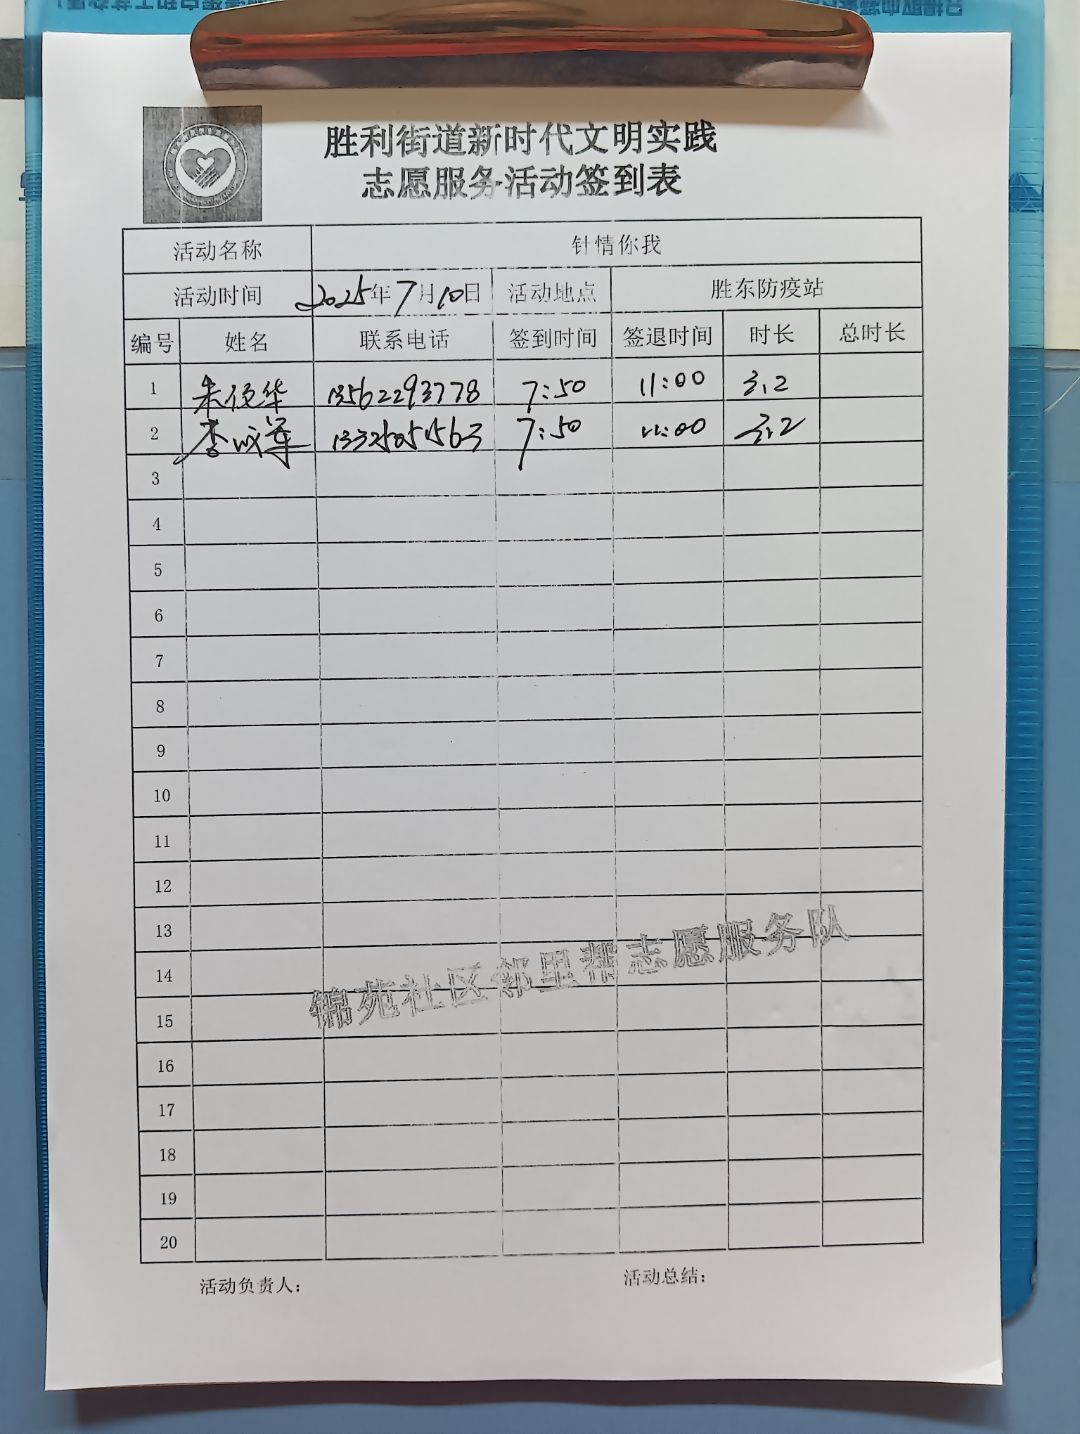 胜利街道新时代文明实践
志愿服务活动签到表
活动名称 针情你我
活动时间 2025年7月10日 活动地点 胜东防疫站
编号 姓名 联系电话 签到时间 签退时间 时长 总时长
1 朱俊华 13562293778 7:50 11:00 3.2
2 李成军 13325051563 7:50 11:00 3.2
3
4
5
6
7
8
9
10
11
12
13
14
15
16
17
18
19
20
锦苑社区邻里帮志愿服务队
活动负责人: 活动总结: